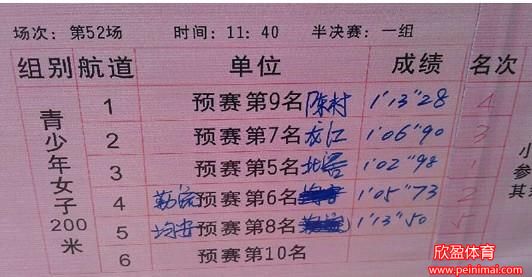 场次：第52场 时间：11：40 半决赛：一组
组别 航道 单位 成绩 名次
青少年女子200米
1 预赛第9名 陈村 1'13"28 4
2 预赛第7名 龙江 1'06"90 3
3 预赛第5名 北滘 1'02"98 1
4 勒流 预赛第6名 1'05"73 2
5 均安 预赛第8名 1'13"50 5
6 预赛第10名
小
参
其
欣盈体育
www.peinimai.com